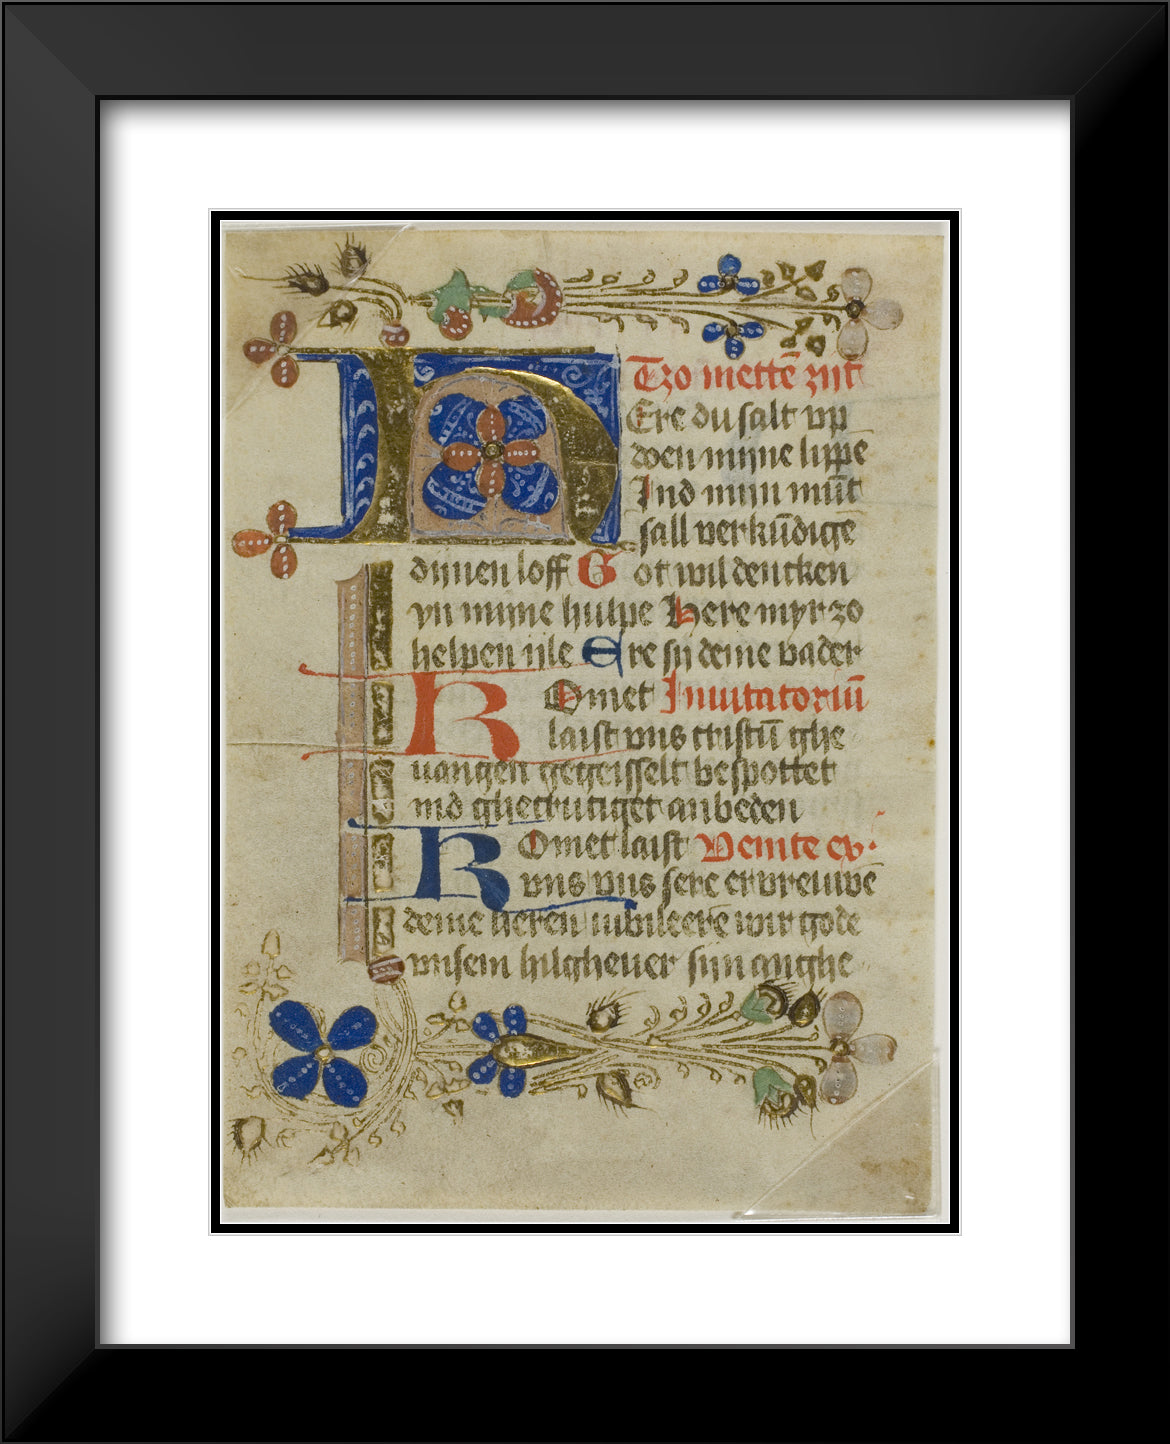 Tzo mettē zijt
HEre du salt vp
doen mijne lippe
Ind mijn mūt
sall verkūdigē
dijnen loff Got wil dencken
yn mijne hulpe Here myr zo
helpen ijle Ere sy deme vader
KOmet Inuitatoriū
laist vns cristū ghe
uangen gegeisselt bespottet
ind ghecrutziget anbeden
KOmet laist Venite ex.
vns vns sere ervreuwē
deme heren iubileerē wir gode
vnsem hilgheuer sijn anghe